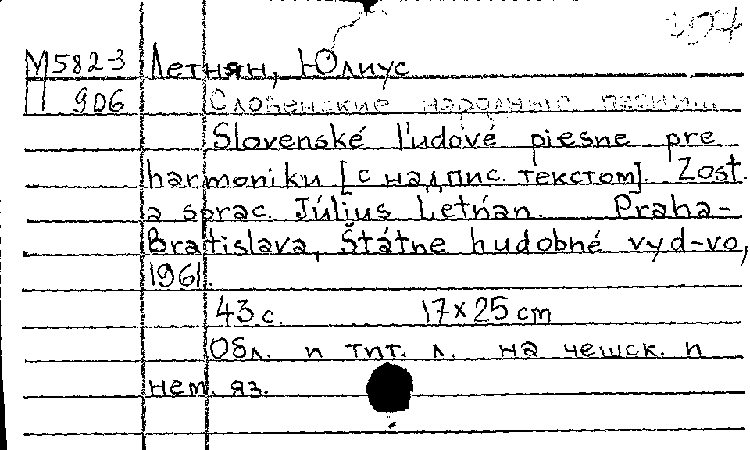 М582-3 Летнян, Юлиус
П 906 Словенские народные песни...
Slovenské ľudové piesne pre
harmoniku [с надпис. текстом]. Zost.
a sprac. Július Letňan. Praha-
Bratislava, Štátne hudobné vyd-vo,
1961.
43 с. 17×25 cm
Обл. и тит. л. на чешск. и
нем. яз.